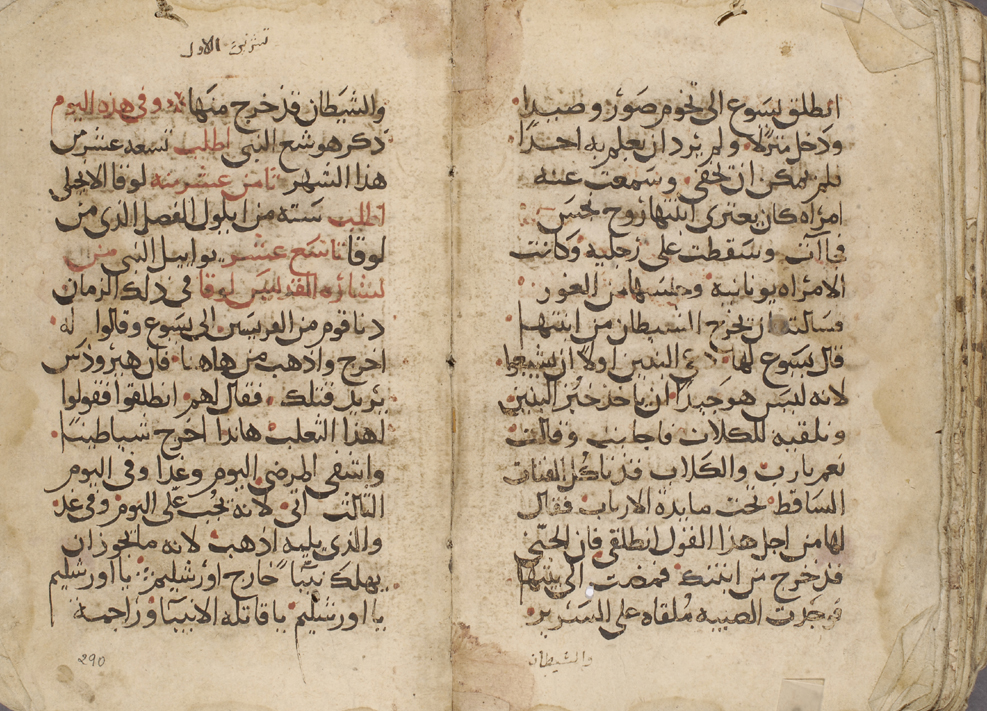 انطلق يسوع الى تخوم صور وصيدا
ودخل منزلا ولم يرد ان يعلم به احدا
فلم يمكن ان تخفى وسمعت عنه
امراه كان يعترى ابنتها روح نجس
فاتت وسقطت على رجليه وكانت
الامراه يونانيه وجنسها من الغور
فسالته ان يخرج الشيطان من ابنتها
قال يسوع لها دعى البنين اولا ان يشبعوا
لانه ليس هو جيدا ان ياخذ خبز البنين
ونلقيه للكلاب فاجابت وقالت
نعم يارب والكلاب قد تاكل الفتات
الساقط تحت مايدة الارباب فقال
لها من اجل هذا القول انطلقى فان الجنى
قد خرج من ابنتك فمضت الى بيتها
فوجدت الصبيه ملقاه على السرير
والشيطان
تشرين الاول
والشيطان قد خرج منها وفى هذه اليوم
ذكر هوشع النبى اطلب تسعه عشر من
هذا الشهر ثامن عشر منه لوقا الانجلى
اطلب سته من ايلول الفصل الذى من
لوقا تاسع عشر يوابيل النبى من
بشاره القديس لوقا فى ذلك الزمان
دنا قوم من الفريسين الى يسوع وقالوا له
اخرج واذهب من هاهنا فان هيرودس
يريد قتلك فقال لهم انطلقوا فقولوا
لهذا الثعلب هاندا اخرج شياطينا
واشفى المرضى اليوم وغدا وفى اليوم
الثالث اتى لانه يجب على اليوم وفى غد
والذى يليه اذهب لانه ما يجوز ان
يهلك نبيا خارج اورشليم يا اورشليم
يا اورشليم يا قاتله الانبيا وراجمة
290